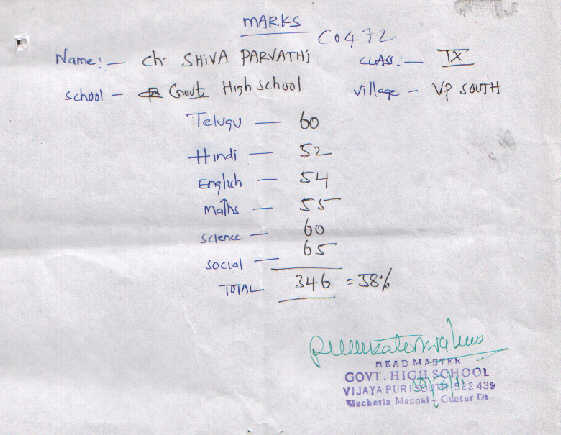 MARKS
C0472
Name:- Ch. SHIVA PARVATHI CLASS:- IX
School - Govt High school Village - V.P SOUTH
Telugu - 60
Hindi - 52
English - 54
Maths - 55
Science - 60
Social - 65
TOTAL 346 = 58%
HEAD MASTER
GOVT. HIGH SCHOOL
VIJAYAPURI SOUTH-522 439
Macherla Mandal, Guntur Dt